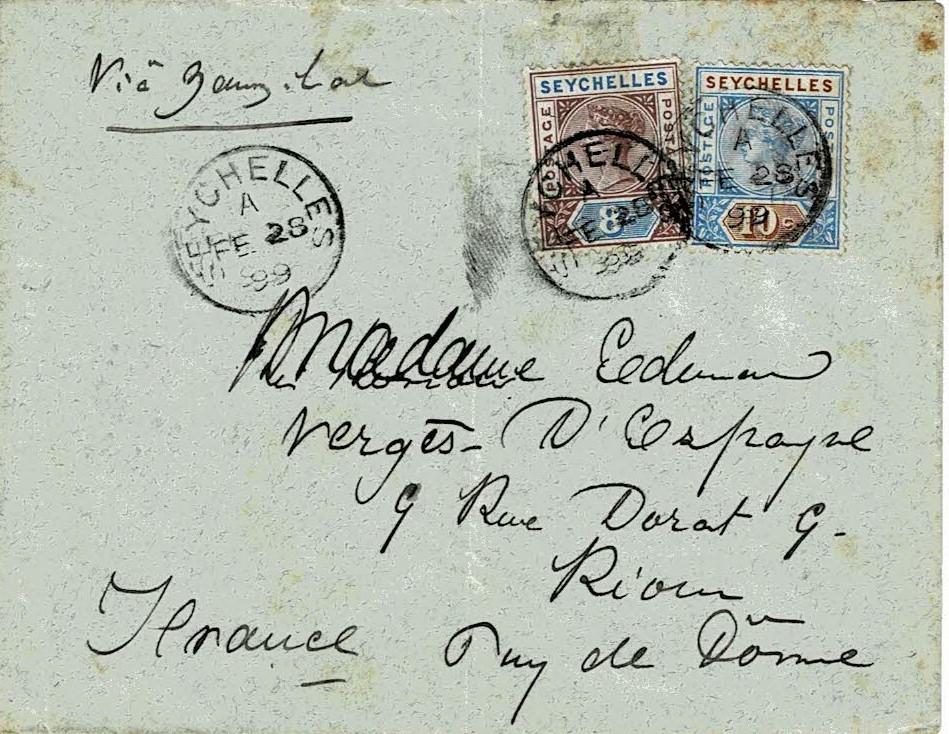 Viâ Zanzibar
SEYCHELLES
POSTAGE
POSTAGE
8
SEYCHELLES
POSTAGE
POSTAGE
10
SEYCHELLES
A
FE 28
99
SEYCHELLES
A
FE 28
99
SEYCHELLES
A
FE 28
99
Madame
Vergès - D'Espagne
9 Rue Dorat 9.
Riom
France Puy de Dôme